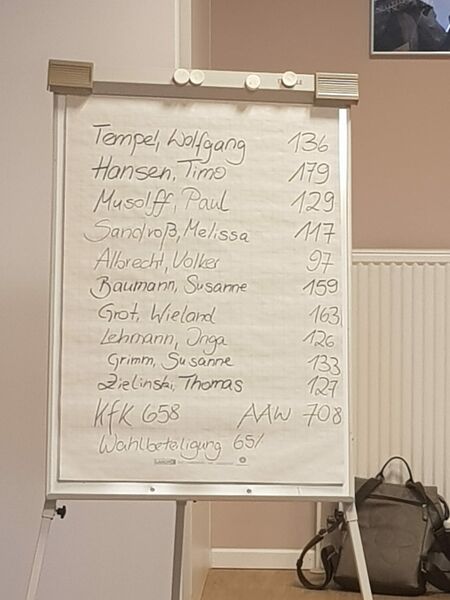 Tempel, Wolfgang 136
Hansen, Timo 179
Musolff, Paul 129
Sandroß, Melissa 117
Albrecht, Volker 97
Baumann, Susanne 159
Grot, Wieland 163
Lehmann, Inga 126
Grimm, Susanne 133
Zielinski, Thomas 127
KfK 658 AAW 708
Wahlbeteligung 65%